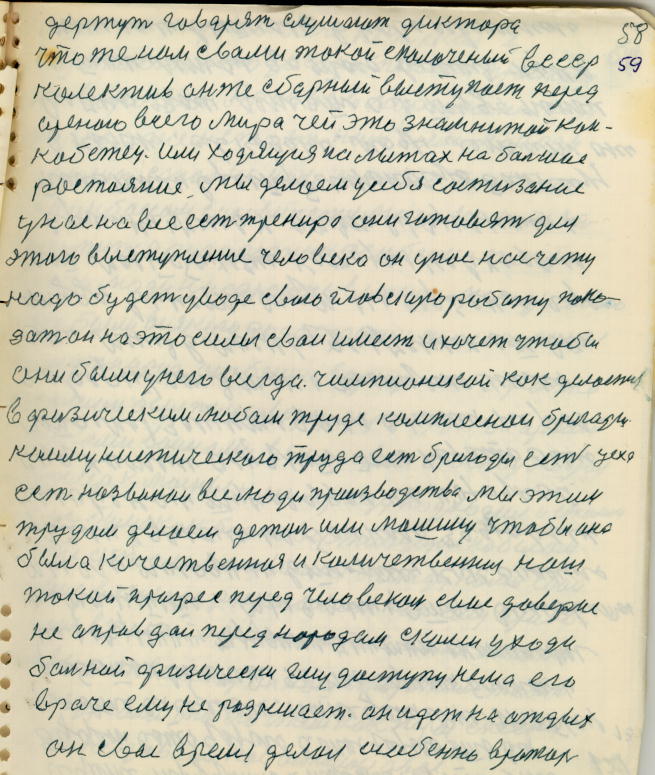 58
59
держут говарят слушают диктора
что же нам с вами токой сполоченый всеср
колектив он же сбарный выступает перед
ареною всего мира чей это знамнитой кон-
кобежец. или ходящия на лыжах на балшие
растояние, мы делаем у себя состизание
у нас на все ест тренира они готовят для
этого выступление человеко он у нас насчету
надо будет у воде свою пловскую работу пока-
зат он на это силы сваи имеет и хочет чтобы
они были у него всегда. чимпионской как делается
в физическим любам труде комплесной бригады
коммунистического труда ест бригоды ест цеха
ест названой все люди производства мы этим
трудом делаем детал или машину чтобы она
была качиственная и каличетвенная наш
токой прогрес перед человеком свае доверие
не аправдал перед народам сками уходи
балной физически ему доступу нема его
враче ему не разришает. он идет на отдых
он свае время делал особенно вротар